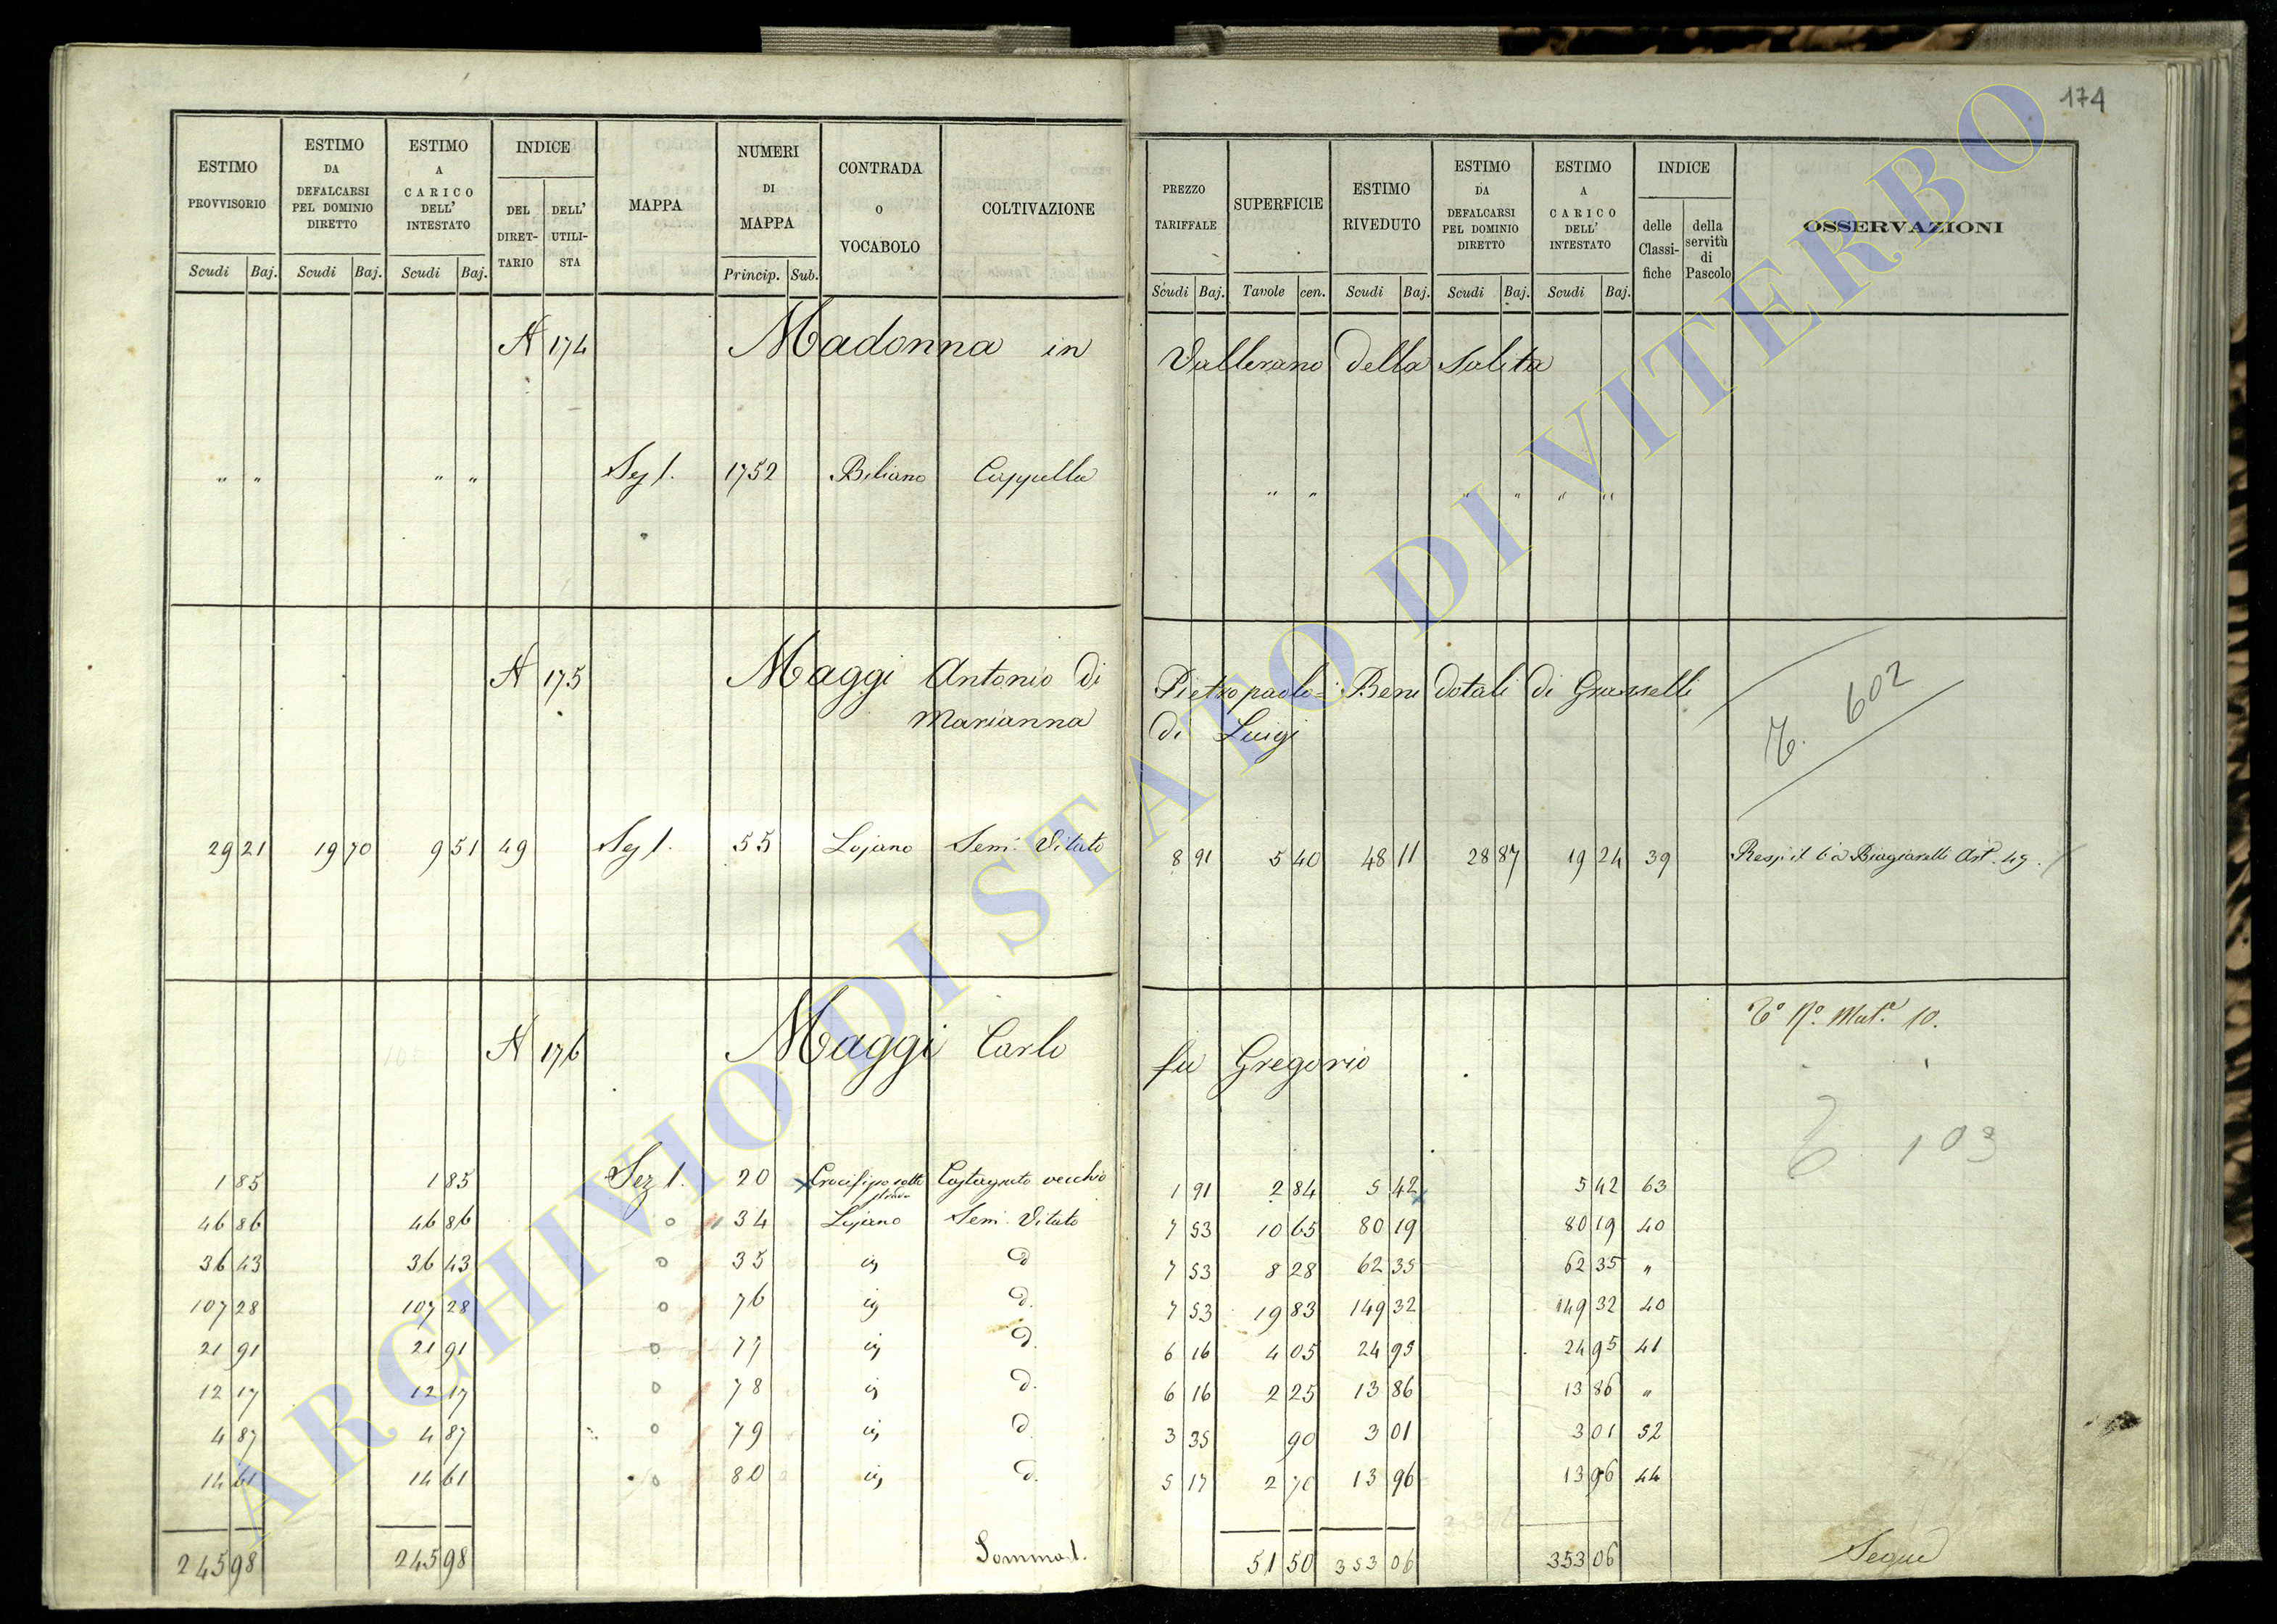 174
ESTIMO PROVVISORIO Scudi Baj.
ESTIMO DA DEFALCARSI PEL DOMINIO DIRETTO Scudi Baj.
ESTIMO A CARICO DELL' INTESTATO Scudi Baj.
INDICE DEL DIRET-TARIO DELL' UTILI-STA
MAPPA
NUMERI DI MAPPA Princip. Sub.
CONTRADA O VOCABOLO
COLTIVAZIONE
PREZZO TARIFFALE Scudi Baj.
SUPERFICIE Tavole cen.
ESTIMO RIVEDUTO Scudi Baj.
ESTIMO DA DEFALCARSI PEL DOMINIO DIRETTO Scudi Baj.
ESTIMO A CARICO DELL' INTESTATO Scudi Baj.
INDICE delle Classi-fiche della servitù di Pascolo
OSSERVAZIONI
A 174 Madonna in Vallerano della Salita
" " " " Sez 1. 1752 Beliano Cappella " " " " " "
A 175 Maggi Antonio di Pietropaolo = Beni dotali di Grasselli
Marianna di Luigi
602
29 21 19 70 9 51 49 Sez 1. 55 Lojano Sem. Vitato 8 91 5 40 48 11 28 87 19 24 39 Biagiarelli Art. 49.
Tº Nº Matª 10.
A 176 Maggi Carlo fu Gregorio
103
1 85 1 85 Sez 1. 20 Castagneto vecchio 1 91 2 84 5 42 5 42 63
46 86 46 86 34 Lojano Sem. Vitato 7 53 10 65 80 19 80 19 40
36 43 36 43 35 id d 7 53 8 28 62 35 62 35 "
107 28 107 28 76 id d. 7 53 19 83 149 32 149 32 40
21 91 21 91 77 id d. 6 16 4 05 24 95 24 95 41
12 17 12 17 78 id d. 6 16 2 25 13 86 13 86 "
4 87 4 87 79 id d 3 35 90 3 01 3 01 52
14 61 14 61 80 id d. 5 17 2 70 13 96 13 96 44
245 98 245 98 Somma 1. 51 50 353 06 353 06 Segue
ARCHIVIO DI STATO DI VITERBO